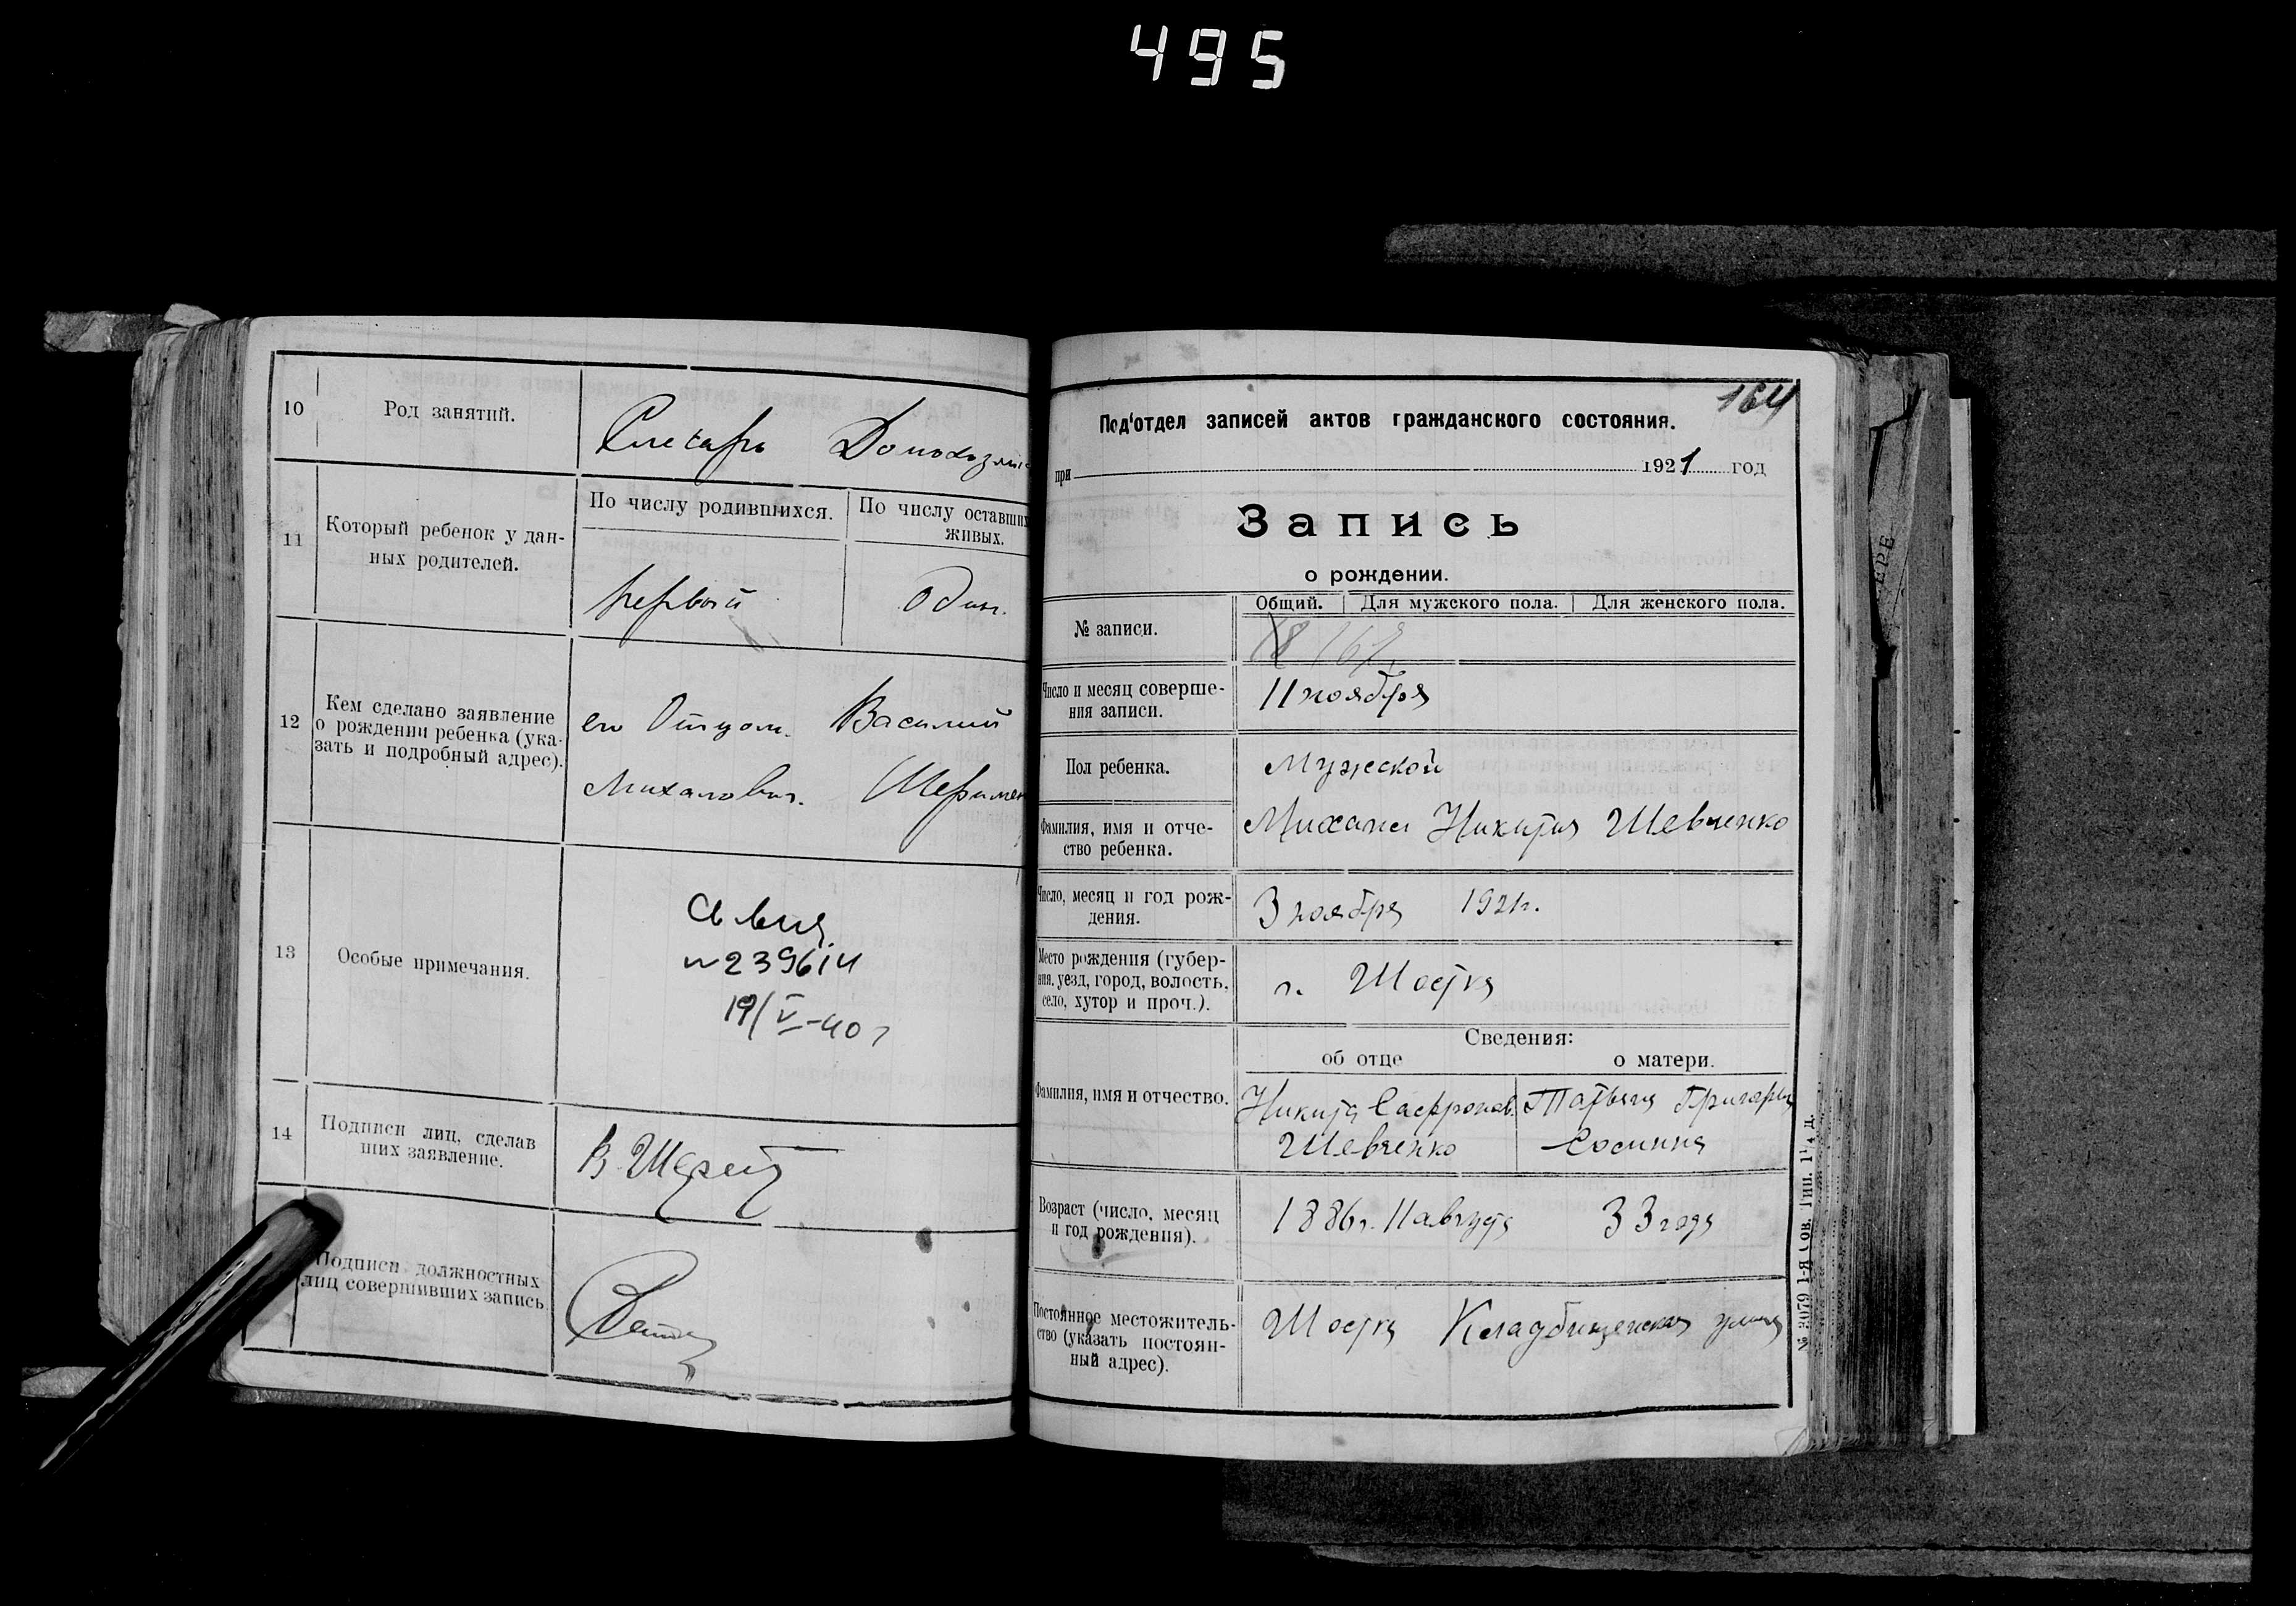 495
10 Род занятий.
Слесарь Домохозяй
11 Который ребенок у дан-
ных родителей.
По числу родившихся. По числу оставших
живых.
первый один.
12 Кем сделано заявление
о рождении ребенка (ука-
зать и подробный адрес).
его Отцом. Василий
Михалович.
13 Особые примечания.
№239614
19/V-40 г
14 Подписи лиц, сделав
ших заявление.
Подписи должностных
лиц совершивших запись.
164
Под'отдел записей актов гражданского состояния.
при 1921 год
Запись
о рождении.
№ записи.
Общий. Для мужского пола. Для женского пола.
Число и месяц соверше-
ния записи.
11 ноября
Пол ребенка.
Мужской
Фамилия, имя и отче-
ство ребенка.
Михаил Никитич Шевченко
Число, месяц и год рож-
дения.
3 ноября 1921г.
Место рождения (губер-
ния, уезд, город, волость,
село, хутор и проч.).
г. Шостка
Сведения:
об отце о матери.
Фамилия, имя и отчество.
Никита Сафронов. Татьяна Григорьев
Шевченко Сосмина
Возраст (число, месяц
и год рождения).
1886г. 11 августа 33 года
Постоянное местожитель-
ство (указать постоян-
ный адрес).
Шостка Кладбищенская улица
№ 2079 1-я Сов. Тип. 1¼ д.